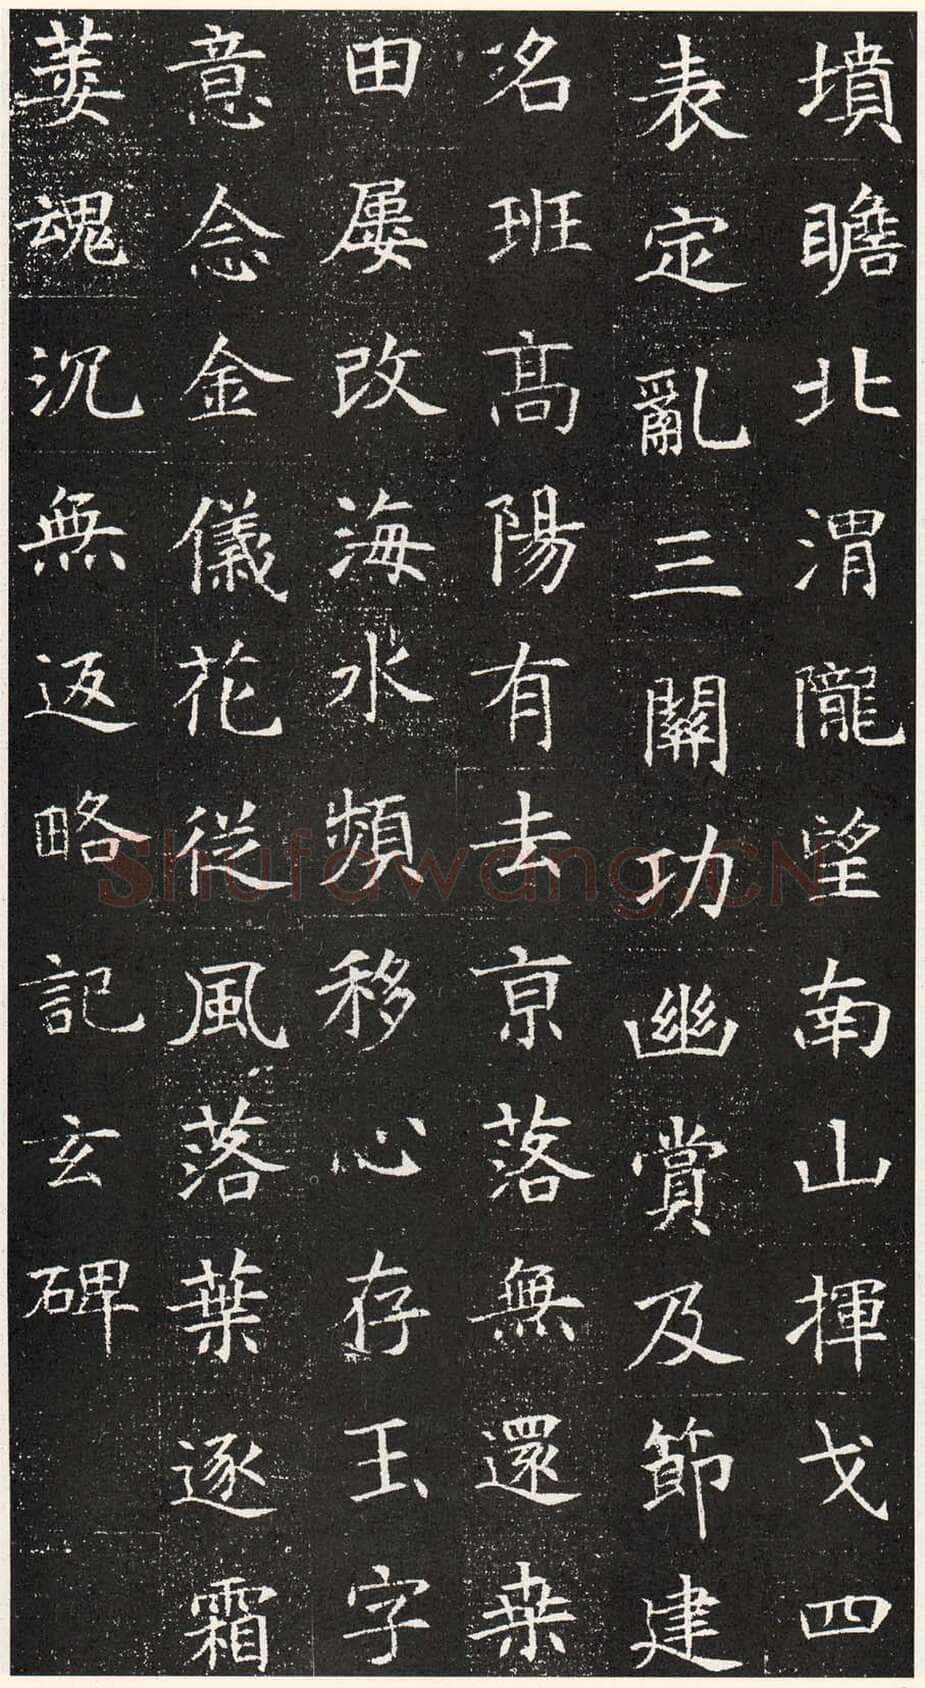 墳瞻北渭隴望南山揮戈四
表定亂三關功幽賞及節建
名班高陽有去京落無還桒
田屢改海水頻移心存玉字
意念金儀花從風落葉逐霜
萎魂沉無返略記玄碑
Shufawang.CN